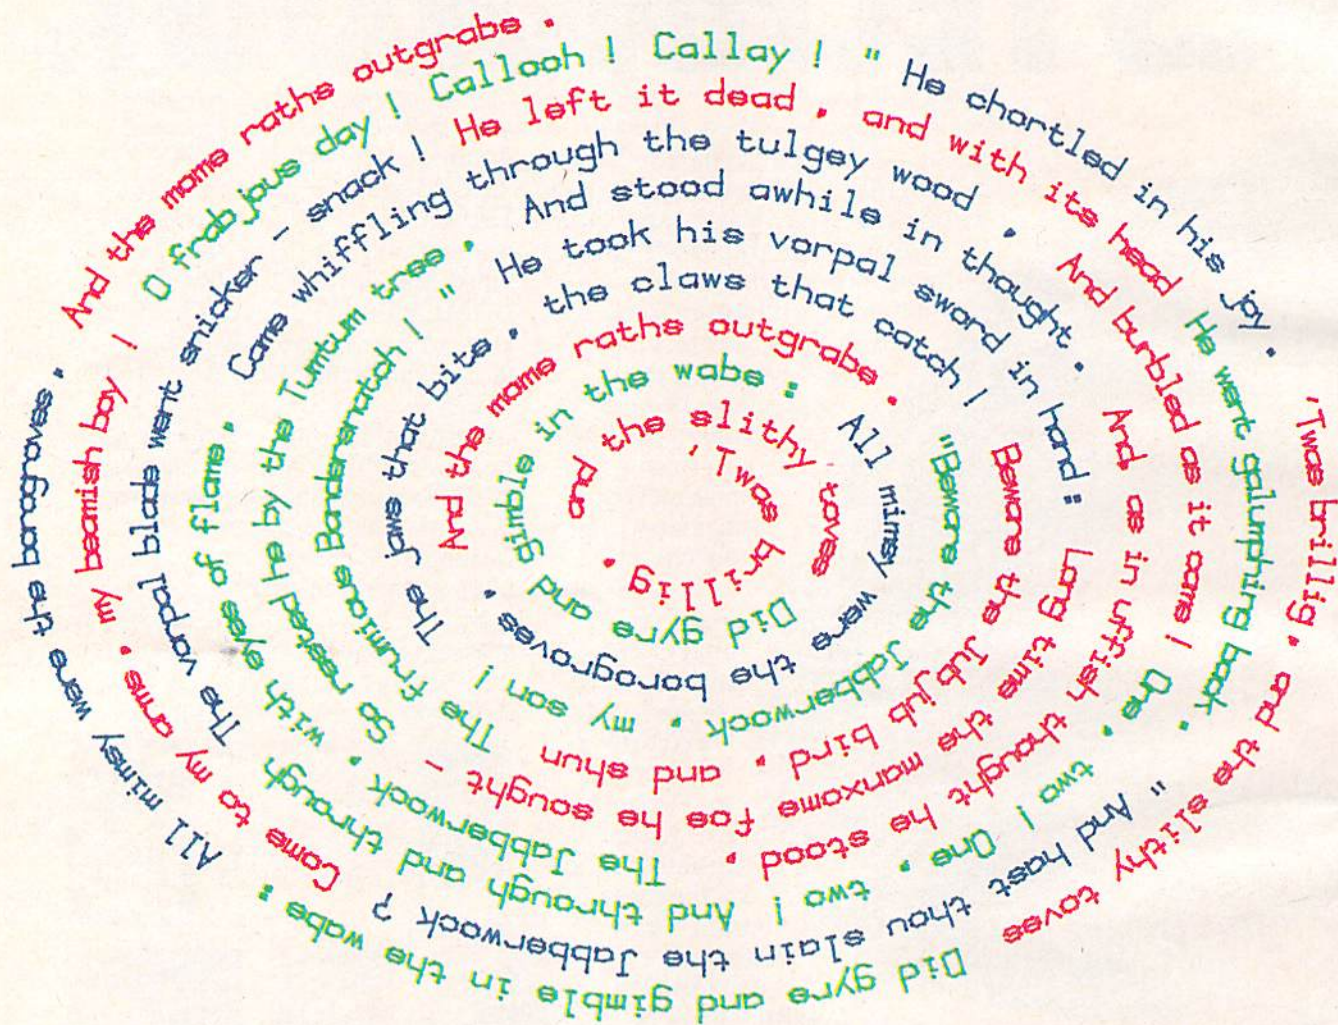 'Twas brillig, and the slithy toves
Did gyre and gimble in the wabe :
All mimsy were the borogroves,
And the mome raths outgrabe.
"Beware the Jabberwock, my son !
The jaws that bite, the claws that catch !
Beware the Jub jub bird, and shun
The frumious Bandersnatch ! "
He took his vorpal sword in hand :
Long time the manxome foe he sought -
So rested he by the Tumtum tree,
And stood awhile in thought.
And, as in uffish thought he stood,
The Jabberwock, with eyes of flame,
Came whiffling through the tulgey wood,
And burbled as it came !
One, two ! One, two ! And through and through
The vorpal blade went snicker - snack !
He left it dead, and with its head
He went galumphing back.
" And hast thou slain the Jabberwock ?
Come to my arms, my beamish boy !
O frabjous day ! Callooh ! Callay ! "
He chortled in his joy.
'Twas brillig, and the slithy toves
Did gyre and gimble in the wabe :
All mimsy were the borogroves,
And the mome raths outgrabe.